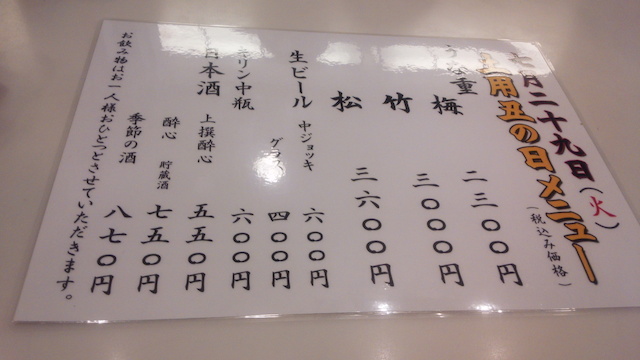 七月二十九日(火)
土用丑の日メニュー
(税込み価格)
うな重
梅 二三〇〇円
竹 三〇〇〇円
松 三六〇〇円
生ビール 中ジョッキ 六〇〇円
グラス 四〇〇円
キリン中瓶 六〇〇円
日本酒
上撰酔心 五五〇円
酔心 貯蔵酒 七五〇円
季節の酒 八七〇円
お飲み物はお一人様おひとつとさせていただきます。